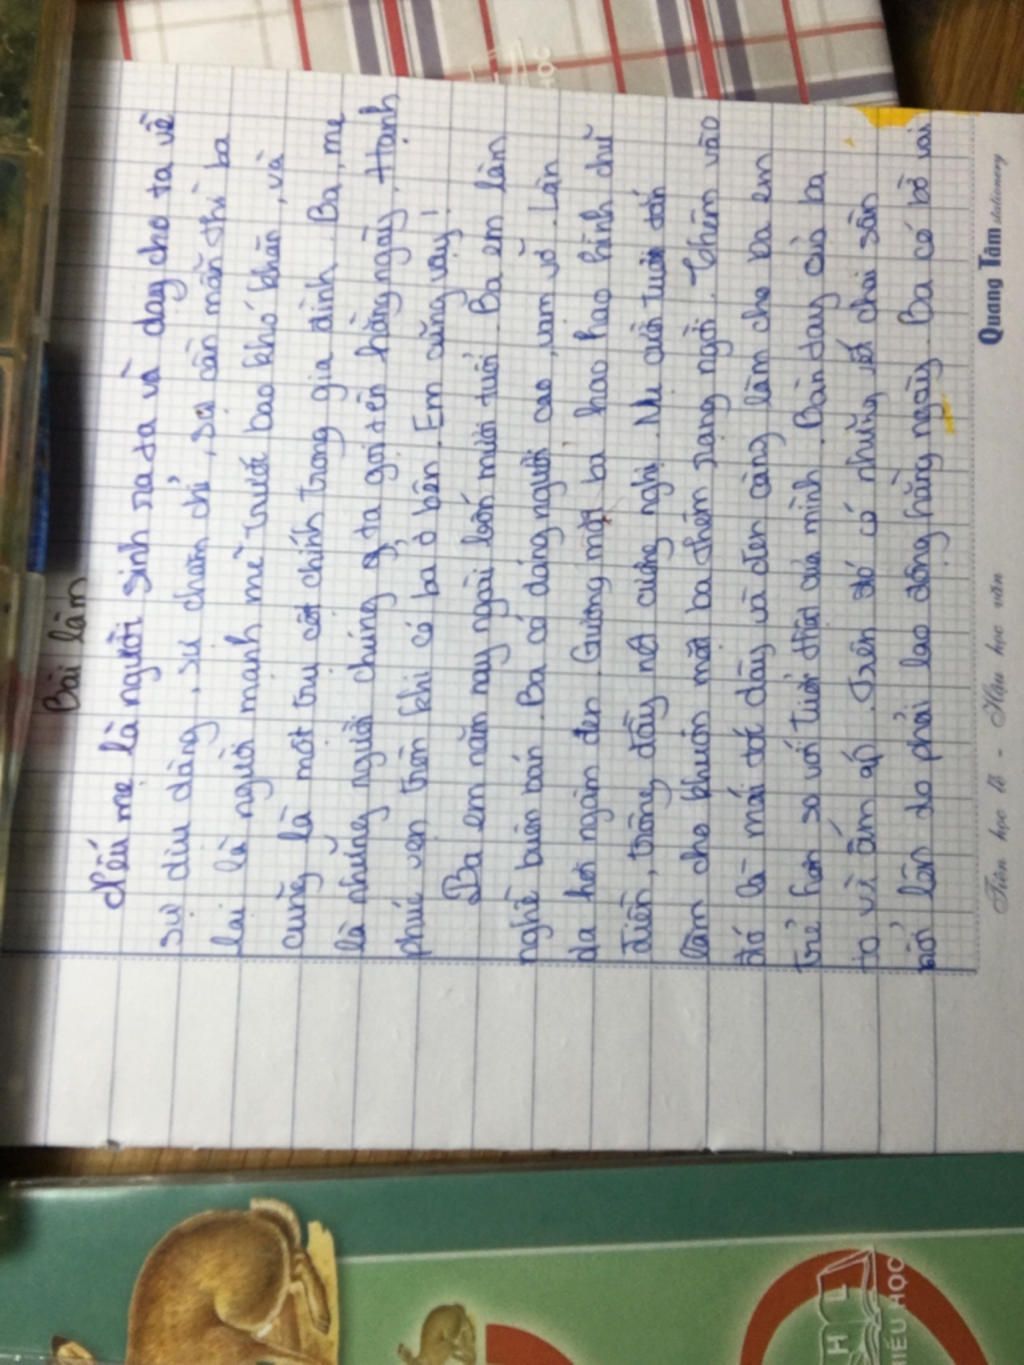 Bài làm
Nếu mẹ là người sinh ra ta và dạy cho ta về
sự dịu dàng, sự chăm chỉ, sự cần mẫn thì ba
lại là người mạnh mẽ trước bao khó khăn, và
cũng là một trụ cột chính trong gia đình. Ba, mẹ
là những người chúng ta gọi tên hằng ngày, Hạnh
phúc vẹn tròn khi có ba ở bên. Em cũng vậy!
Ba em năm nay ngoài bốn mươi tuổi. Ba em làm
nghề buôn bán. Ba có dáng người cao, vạm vỡ. Làn
da hơi ngăm đen. Gương mặt ba hao hao hình chữ
điền, trông đầy nét cương nghị. Nụ cười tươi tắn
làm cho khuôn mặt ba thêm rạng ngời. Thêm vào
đó là mái tóc dày và đen càng làm cho ba em
trẻ hơn so với tuổi thật của mình. Bàn tay của ba
to và ấm áp. Trên đó có những vết chai sần
nổi lên do phải lao động hằng ngày. Ba có bờ vai
Quang Tâm stationery
Tiên học lễ - Hậu học văn
H L
IỂU HỌC
HỌC